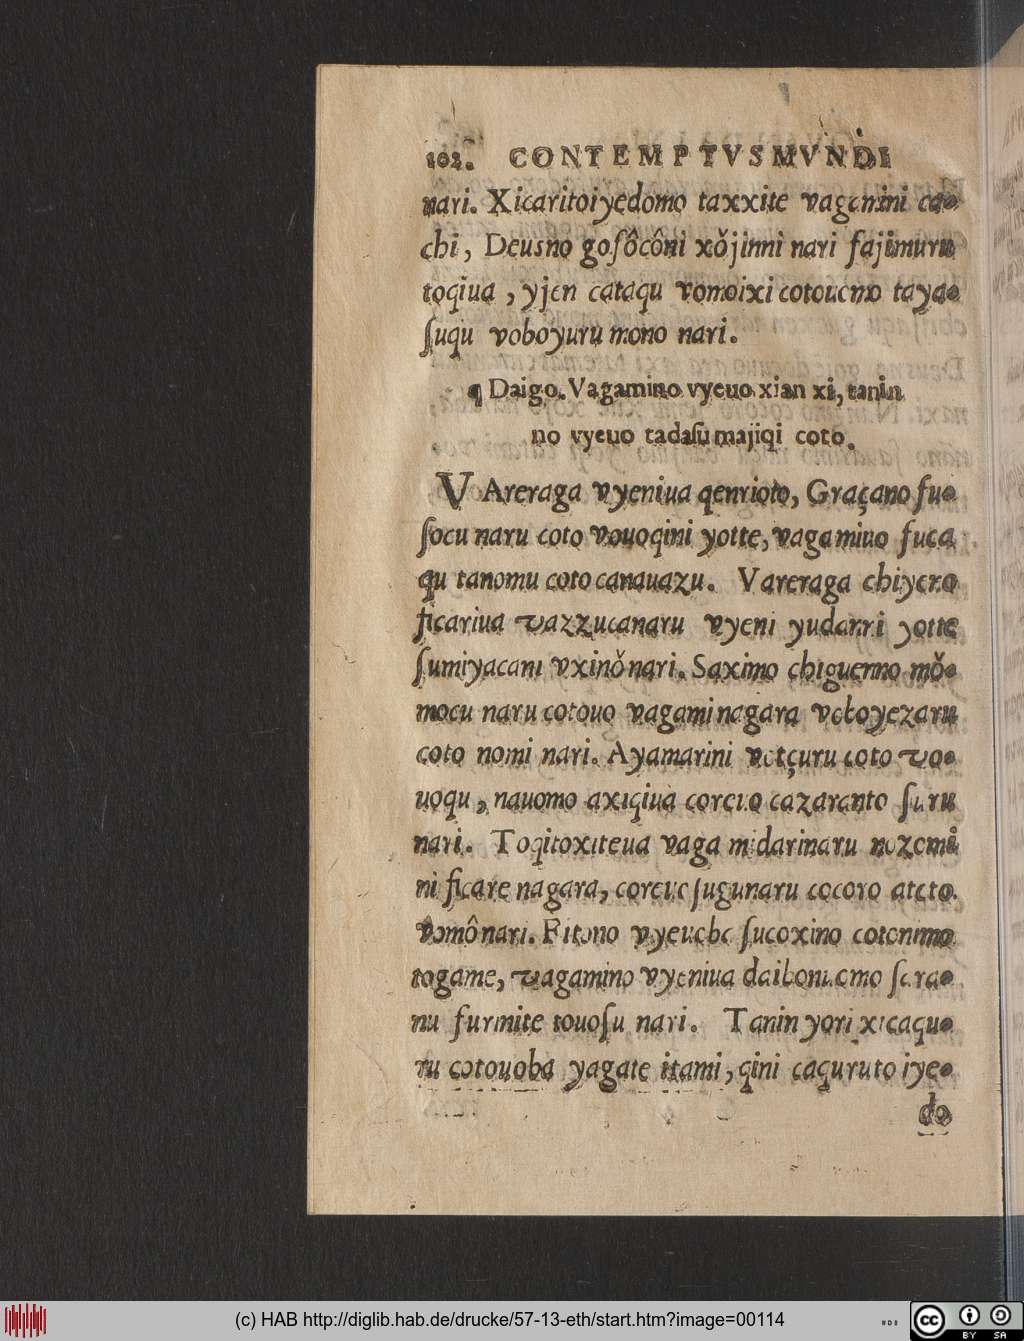 102. CONTEMPTVS MVNDI
nari. Xicaritoiyedomo taxxite vagonini ca-
chi, Deusno gosôcôni xǒjinni nari fajimuru
toqiua, yjen cataqu vomoixi cotouemo taya-
suqu voboyuru mono nari.
¶ Daigo. Vagamino vyeuo xian xi, tanin
no vyeuo tadasu majiqi coto.
VAreraga vyeniua qenrioto, Graçano fu-
socu naru coto vouoqini yotte, vagamiuo fuca
qu tanomu coto canauazu. Vareraga chiyeno
ficariua vazzucanaru vyeni yudanni yotte
sumiyacani vxinǒ nari. Saximo chiguenno mǒ-
mocu naru cotouo vagami nagara voboyezaru
coto nomi nari. Ayamarini votçuru coto vo-
uoqu, nauomo axiqiua coreuo cazaranto suru
nari. Toqitoxiteua vaga midarinaru nozomi
ni ficare nagara, coreuo sugunaru cocoro ateto
vomô nari. Fitono vyeuoba sucoxino cotonimo
togame, vagamino vyeniua daibonuomo sara-
nu furinite touosu nari. Tanin yori xicaqu-
ru cotouoba yagate itami, qini caquruto iye-
do
(c) HAB http://diglib.hab.de/drucke/57-13-eth/start.htm?image=00114
cc BY SA